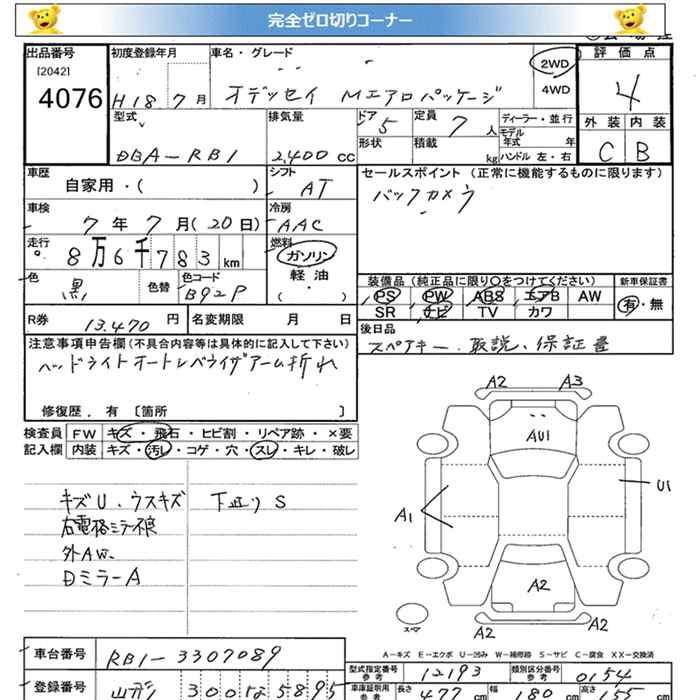 完全ゼロ切りコーナー
出品番号 初度登録年月 車名・グレード 評価点
[2042]
4076 H18年7月 オデッセイ Mエアロパッケージ 2WD 4WD 4
型式 排気量 ドア 5 定員 7人 ディーラー・並行 外装 内装
形状 積載 kg モデル年式 年 ハンドル 左・右
DBA-RB1 2,400cc C B
車歴 シフト セールスポイント (正常に機能するものに限ります)
自家用・( ) AT バックカメラ
車検 7年7月(20日) 冷房 AAC
走行 8万6千783km 燃料 ガソリン・軽油 ( )
装備品 (純正品に限り○をつけてください) 新車保証書
色 黒 色替 色コード B92P PS PW ABS エアB AW 有・無
SR ナビ TV カワ
R券 13,470円 名変期限 月 日 後日品
スペアキー、取説、保証書
注意事項申告欄 (不具合内容等は具体的に記入して下さい)
ヘッドライトオートレベライザアーム折れ
修復歴、有 [箇所 ]
検査員記入欄 FW キズ・飛石・ヒビ割・リペア跡・×要
内装 キズ・汚レ・コゲ・穴・スレ・キレ・破レ
キズU、ウスキズ 下廻りS
右電格ミラー不良
外AW、
DミラーA
A2 A3
AU1
U1
A1
A2
スペア
A2 A2
A-キズ E-エクボ U-凹み W-補修跡 S-サビ C-腐食 XX-交換済
車台番号 RB1-3307089
型式指定番号 参考 12193 類別区分番号 参考 0154
登録番号 山形 300 な 5895 車庫証明用 参考 長さ 477cm 幅 180cm 高さ 155cm